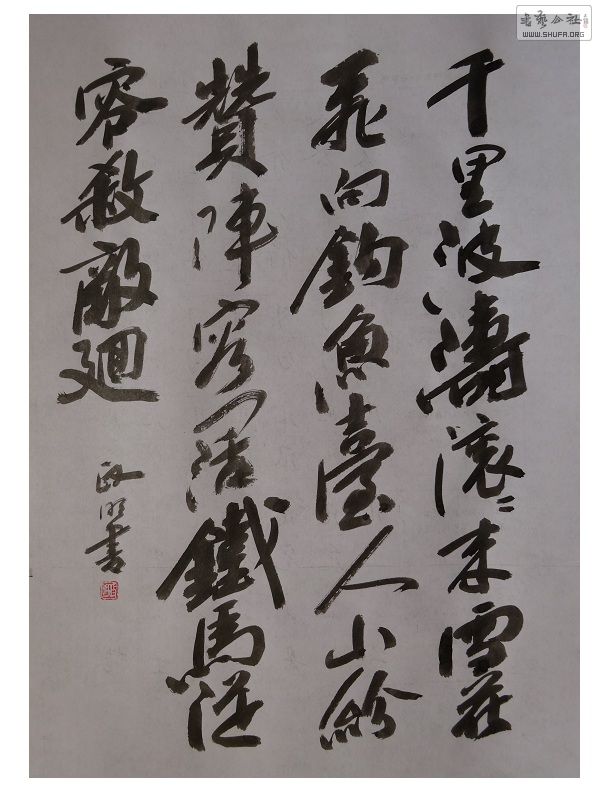 千里波濤滾々来雪花
飛向釣魚臺人山紛
贊陣容闊鐵馬從
容殺敵廻
政明書
书艺公社
WWW.SHUFA.ORG